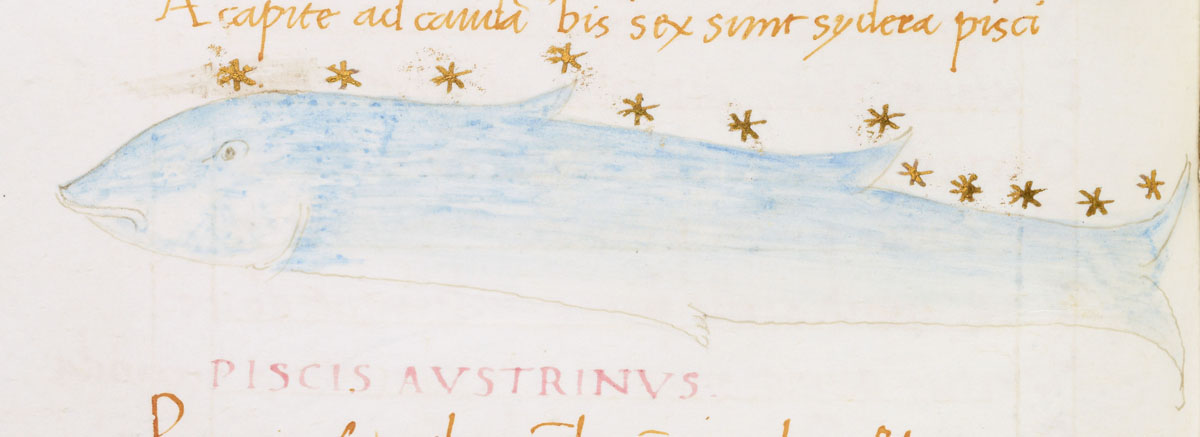 A capite ad caudā bis sex sunt sydera pisci
PISCIS AVSTRINVS.